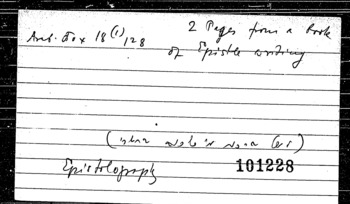 Arab. Box 18(1)/128
2 Pages from a Book
of Epistle writing
Epistolography
101228